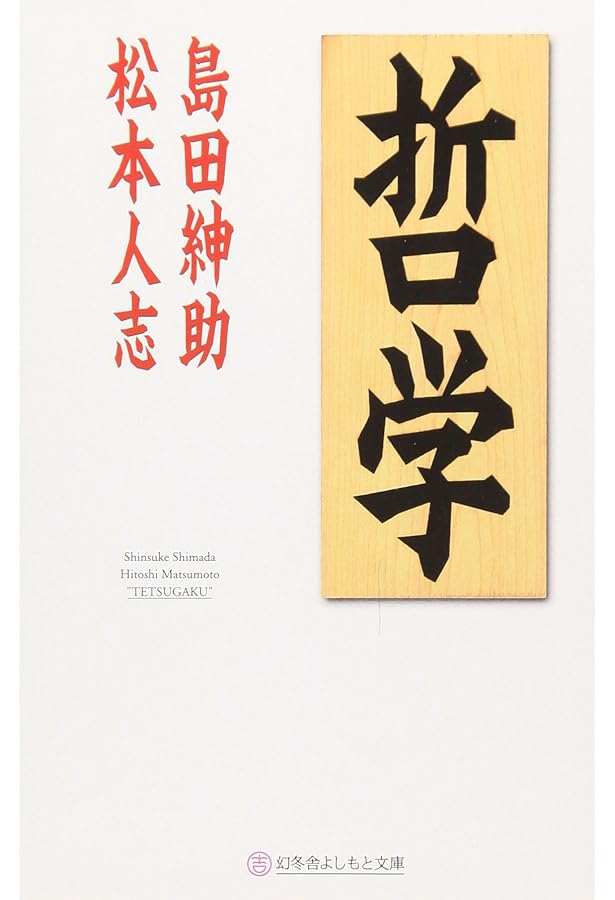 哲学
島田紳助
松本人志
Shinsuke Shimada
Hitoshi Matsumoto
"TETSUGAKU"
吉 幻冬舎よしもと文庫